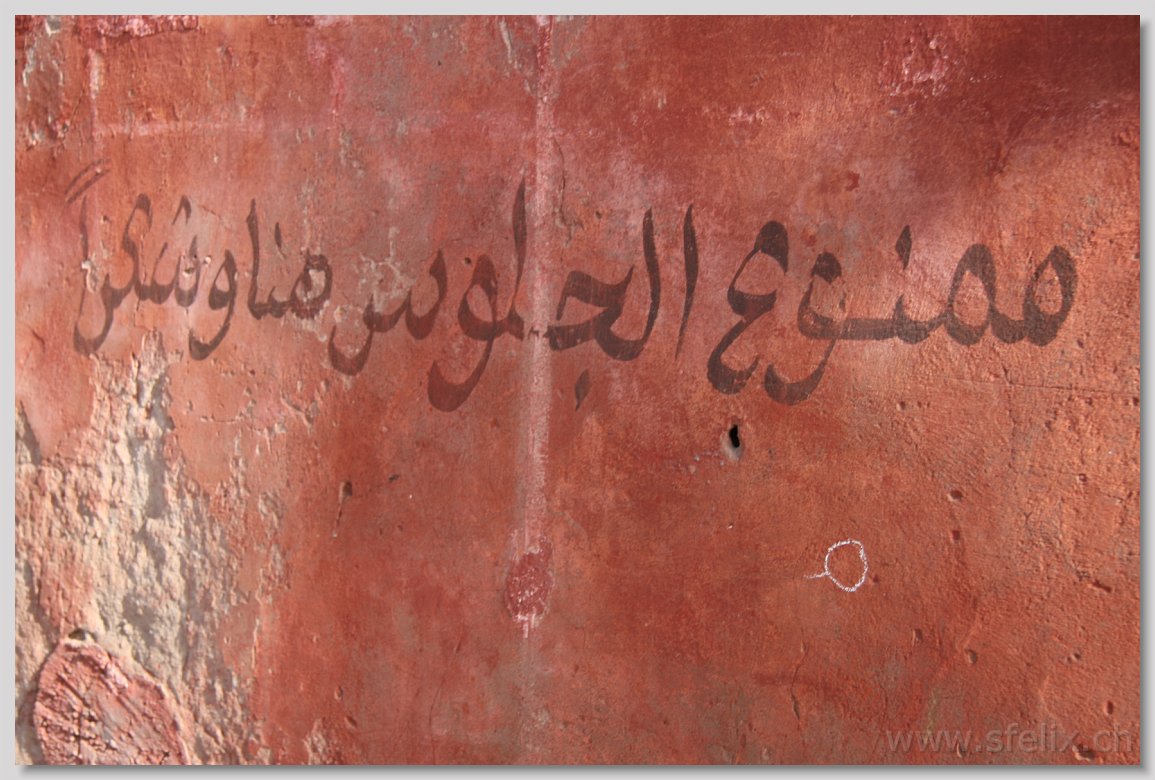 ممنوع الجلوس هنا وشكراً
www.sfelix.ch